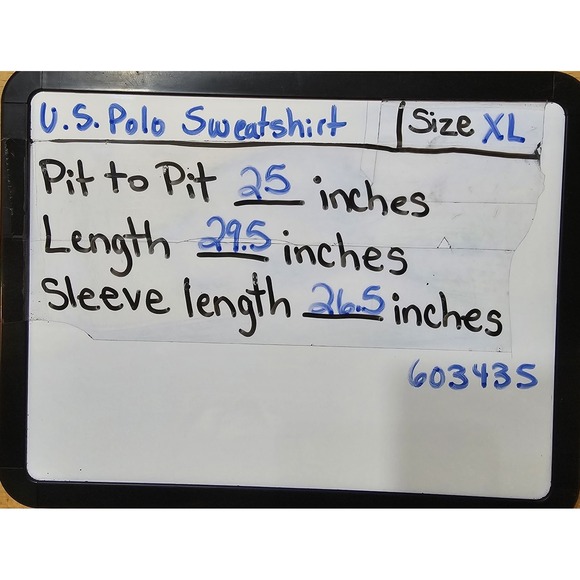 U.S. Polo Sweatshirt | Size XL
Pit to Pit 25 inches
Length 29.5 inches
Sleeve length 26.5 inches
603435